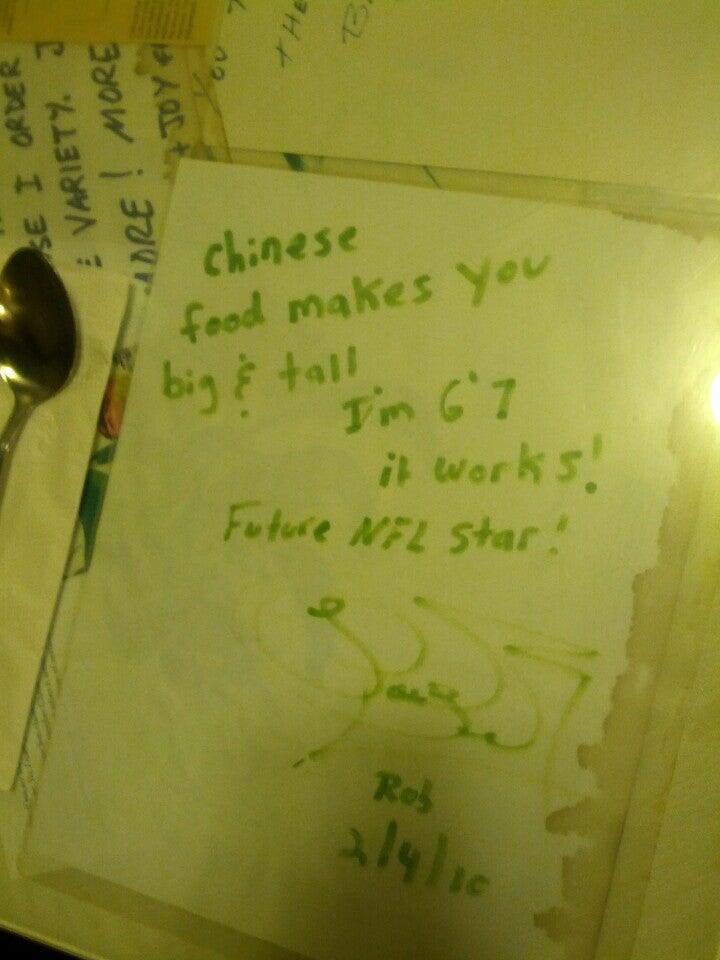 chinese
food makes you
big & tall
I'm 6'7
it works!
Future NFL star!
Rob
2/4/10
SE I ORDER
VARIETY.
! MORE
+ JOY
YOU
THE